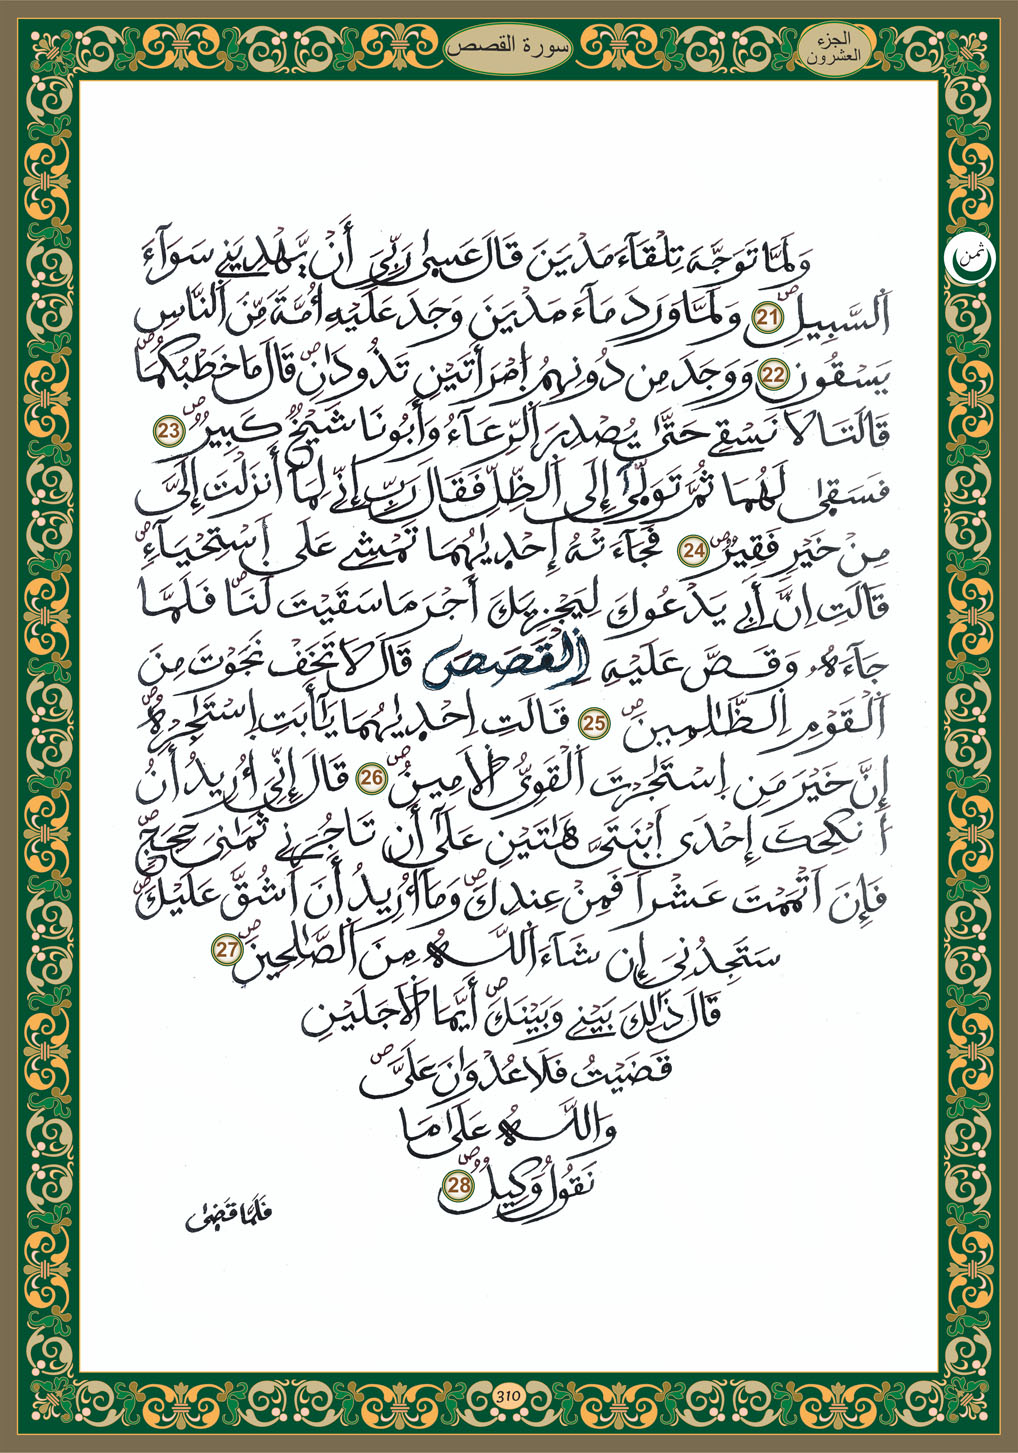 سورة القصص
الجزء
العشرون
ثمن
وَلَمَّا تَوَجَّهَ تِلْقَآءَ مَدْيَنَ قَالَ عَسىٰ رَبِّيَ أَنْ يَّهْدِيَنِے سَوَآءَ
اَ۬لسَّبِيلِۖ 21 وَلَمَّا وَرَدَ مَآءَ مَدْيَنَ وَجَدَ عَلَيْهِ أُمَّةٗ مِّنَ اَ۬لنَّاسِ
يَسْقُونَ 22 وَوَجَدَ مِن دُونِهِمُ اِمْرَأَتَيْنِ تَذُودَانِۖ قَالَ مَا خَطْبُكُمَاۖ
قَالَتَا لَا نَسْقِے حَتَّىٰ يُصْدِرَ اَ۬لرِّعَآءُ وَأَبُونَا شَيْخٞ كَبِيرٞۖ 23
فَسَقىٰ لَهُمَا ثُمَّ تَوَلّىٰٓ إِلَى اَ۬لظِّلِّ فَقَالَ رَبِّ إِنِّے لِمَآ أَنزَلْتَ إِلَيَّ
مِنْ خَيْرٖ فَقِيرٞۖ 24 فَجَآءَتْهُ إِحْدىٰهُمَا تَمْشِے عَلَى اَ۪سْتِحْيَآءٖۖ
قَالَتِ اِنَّ أَبِے يَدْعُوكَ لِيَجْزِيَكَ أَجْرَ مَا سَقَيْتَ لَنَاۖ فَلَمَّا
جَآءَهُۥ وَقَصَّ عَلَيْهِ اِ۬لْقَصَصَ قَالَ لَا تَخَفْ نَجَوْتَ مِنَ
اَ۬لْقَوْمِ اِ۬لظَّٰلِمِينَۖ 25 قَالَتِ اِحْدىٰهُمَا يَٰٓأَبَتِ اِ۪سْتَٰجِرْهُۖ
إِنَّ خَيْرَ مَنِ اِ۪سْتَٰجَرْتَ اَ۬لْقَوِيُّ اَ۬لَامِينُۖ 26 قَالَ إِنِّيَ أُرِيدُ أَنُ
ا۟نكِحَكَ إِحْدَى اَ۪بْنَتَيَّ هَٰتَيْنِ عَلَىٰٓ أَن تَاجُرَنِے ثَمَٰنِيَ حِجَجٖۖ
فَإِنَ اَتْمَمْتَ عَشْراٗ فَمِنْ عِندِكَۖ وَمَآ أُرِيدُ أَنَ اَشُقَّ عَلَيْكَۖ
سَتَجِدُنِيَ إِن شَآءَ اَ۬للَّهُ مِنَ اَ۬لصَّٰلِحِينَۖ 27
قَالَ ذَٰلِكَ بَيْنِے وَبَيْنَكَۖ أَيَّمَا اَ۬لَاجَلَيْنِ
قَضَيْتُ فَلَا عُدْوَٰنَ عَلَيَّۖ
وَاللَّهُ عَلَىٰ مَا
نَقُولُ وَكِيلٞۖ 28
فَلَمَّا قَضىٰ
310